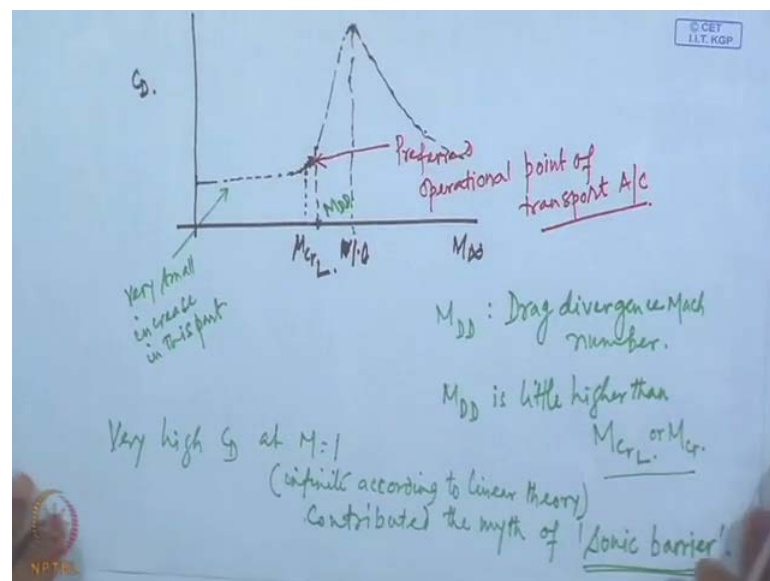 © CET
I.I.T. KGP
C_D.
Preferred
operational point of
transport A/C
M_DD
M_crL.
M_DD
Very small
increase
in this part
M_DD : Drag divergence Mach
number.
M_DD is little higher than
M_crL or M_cr.
Very high C_D at M=1
(infinite according to linear theory)
Contributed the myth of 'Sonic barrier'.
NPTEL